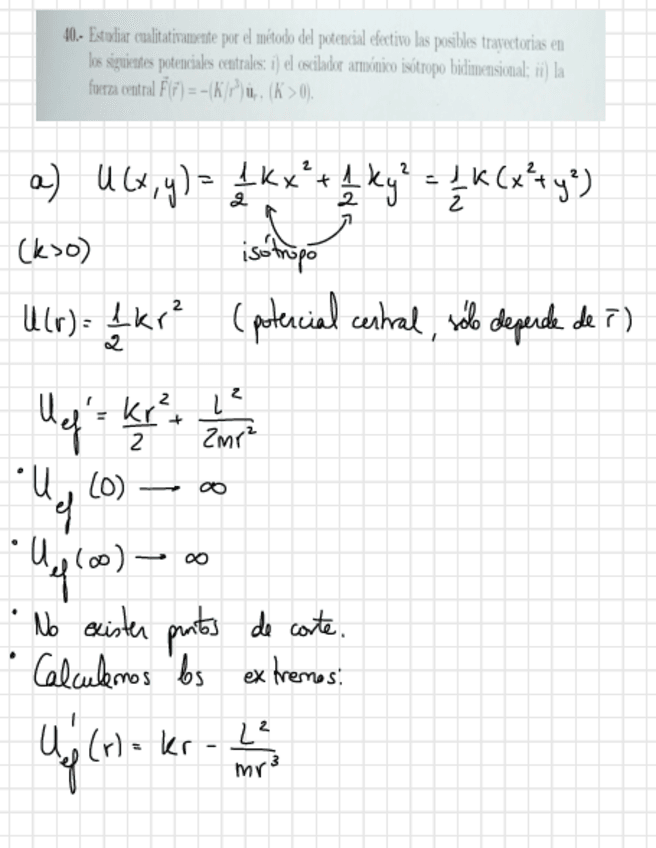 40.- Estudiar cualitativamente por el método del potencial efectivo las posibles trayectorias en
los siguientes potenciales centrales: i) el oscilador armónico isótropo bidimensional; ii) la
fuerza central F⃗(r⃗) = -(K/r³)u⃗ᵣ. (K > 0).
a) U(x,y) = 1/2 kx² + 1/2 ky² = 1/2 k(x²+y²)
(k>0) isótropo
U(r) = 1/2 kr² (potencial central, sólo depende de r̄)
Uef' = kr²/2 + L²/2mr²
· Uef (0) → ∞
· Uef (∞) → ∞
· No existen puntos de corte.
· Calculemos los extremos:
Uef'(r) = kr - L²/mr³